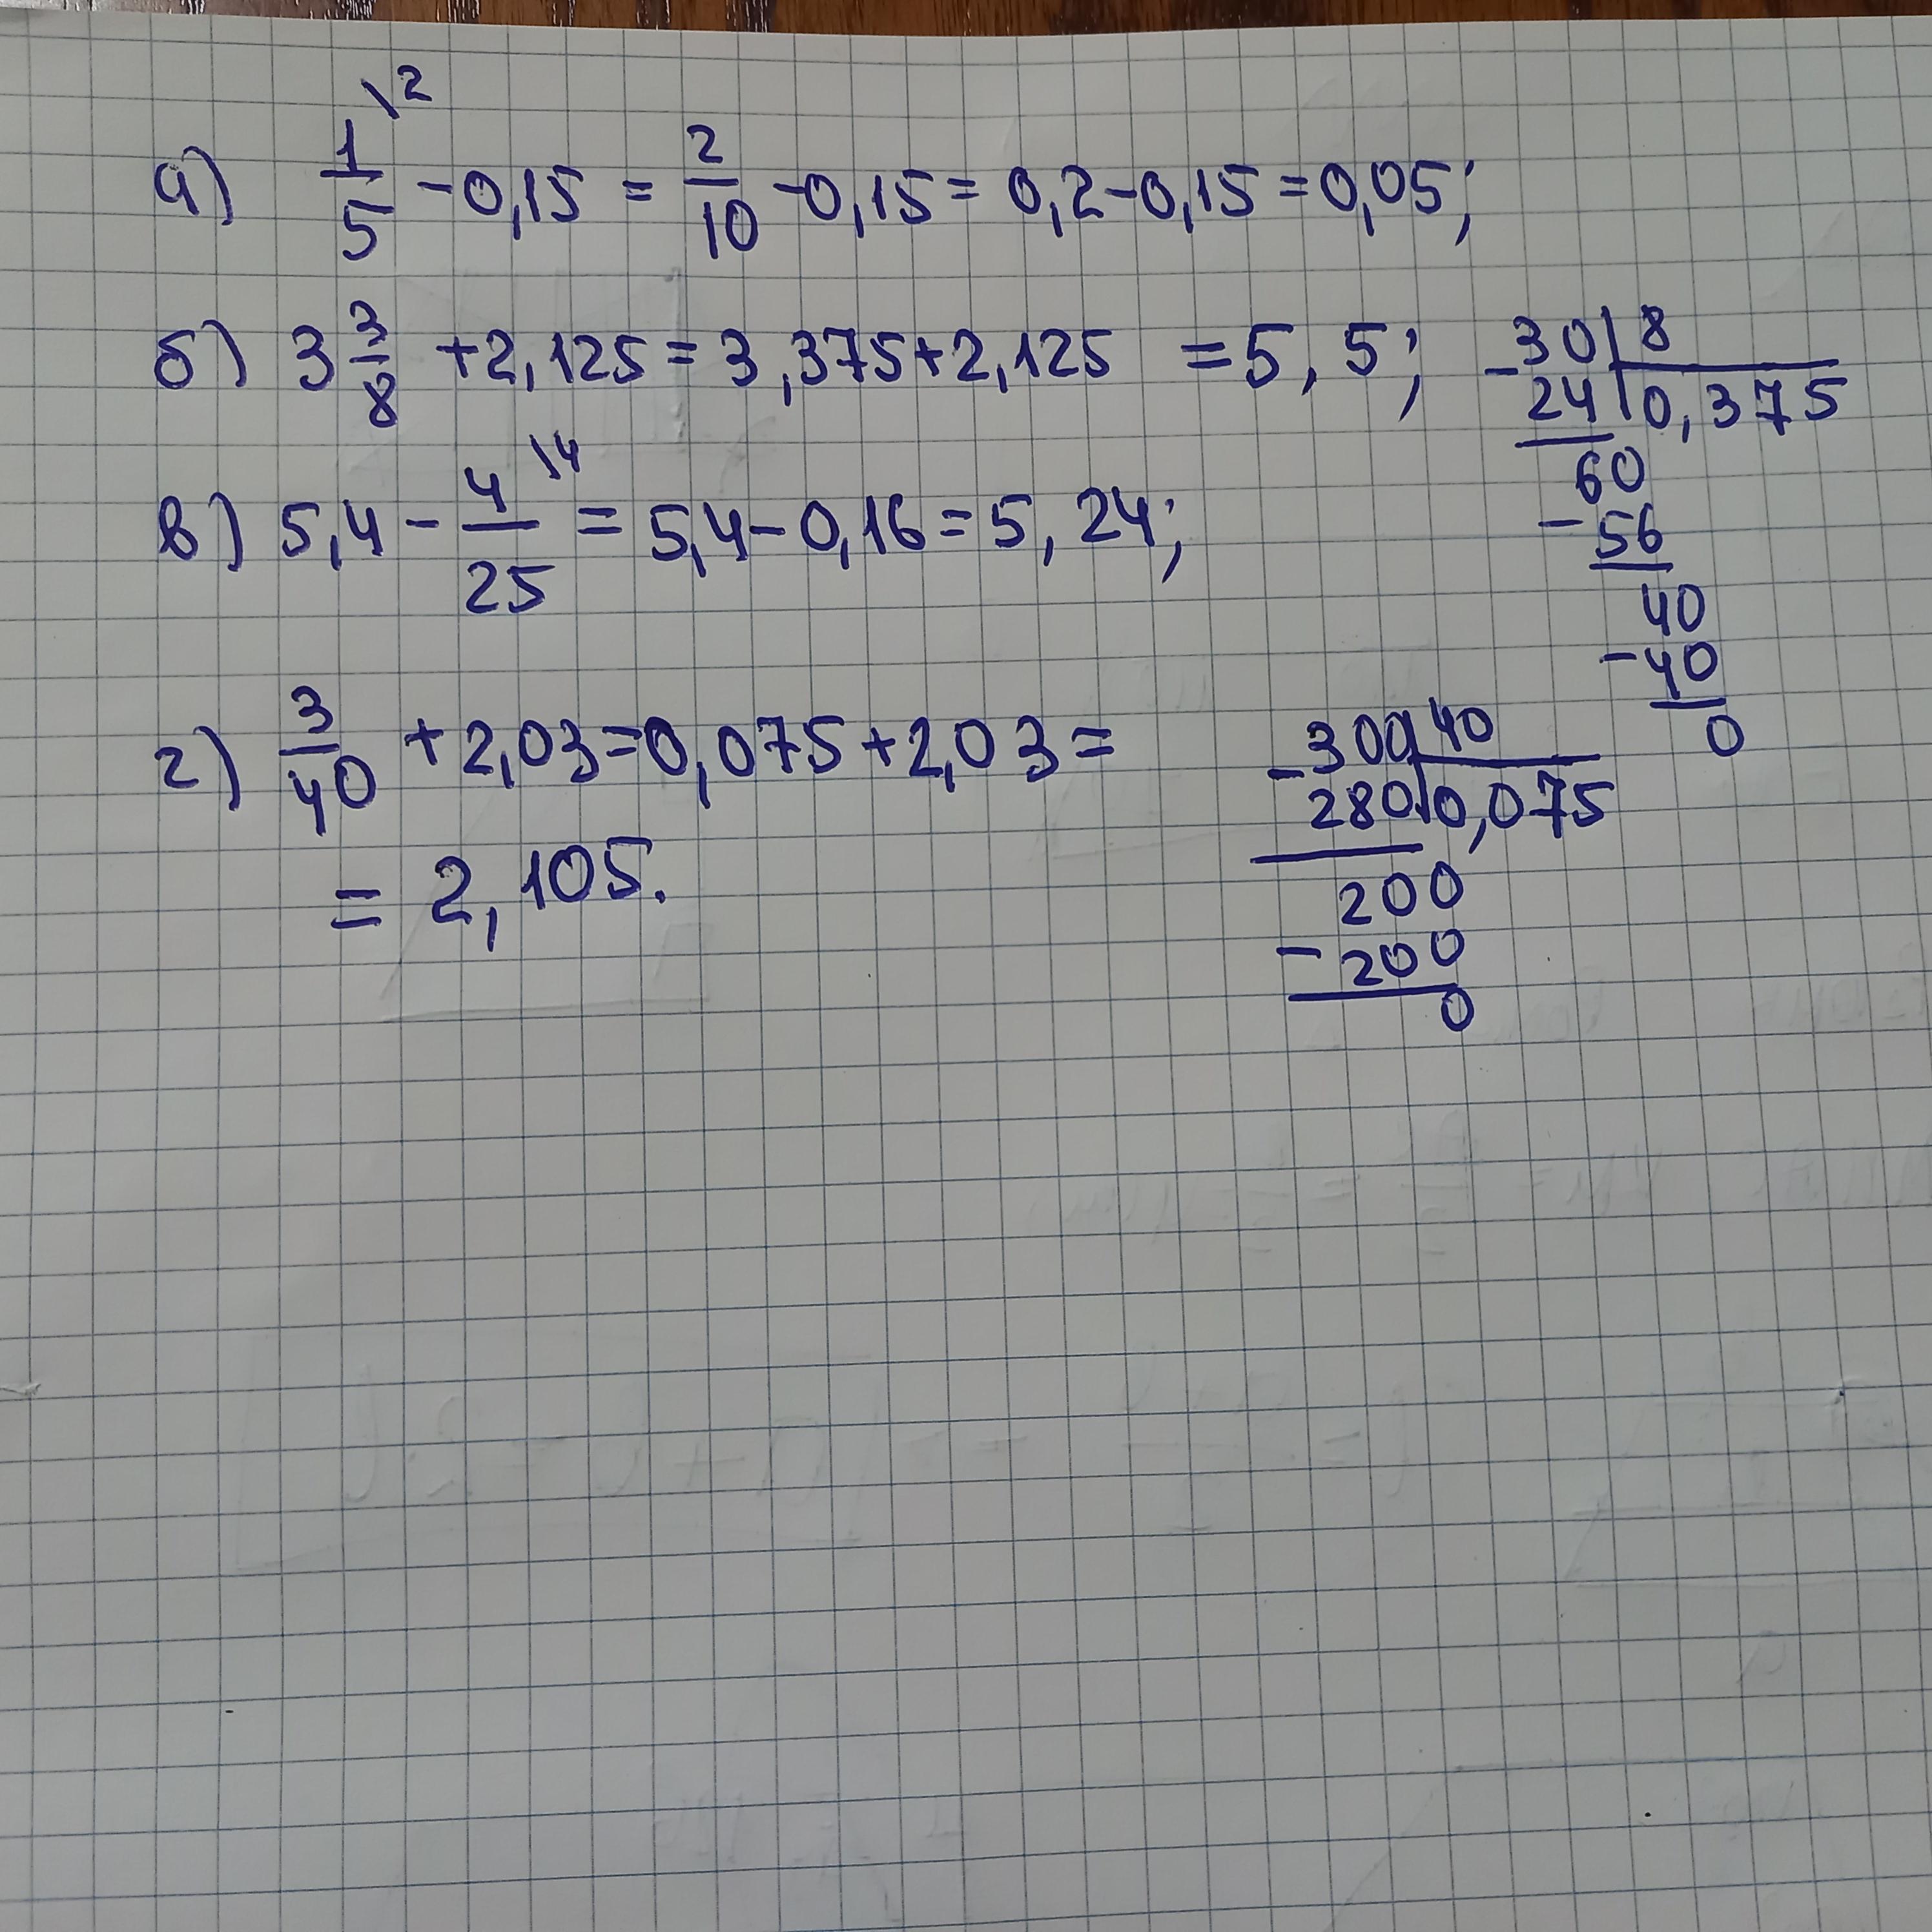 а) 1/5 \2 - 0,15 = 2/10 - 0,15 = 0,2 - 0,15 = 0,05;
б) 3 3/8 + 2,125 = 3,375 + 2,125 = 5,5;
в) 5,4 - 4/25 \4 = 5,4 - 0,16 = 5,24;
г) 3/40 + 2,03 = 0,075 + 2,03 =
= 2,105.
- 30 | 8
24 | 0,375
60
- 56
40
- 40
0
- 300 | 40
280 | 0,075
200
- 200
0